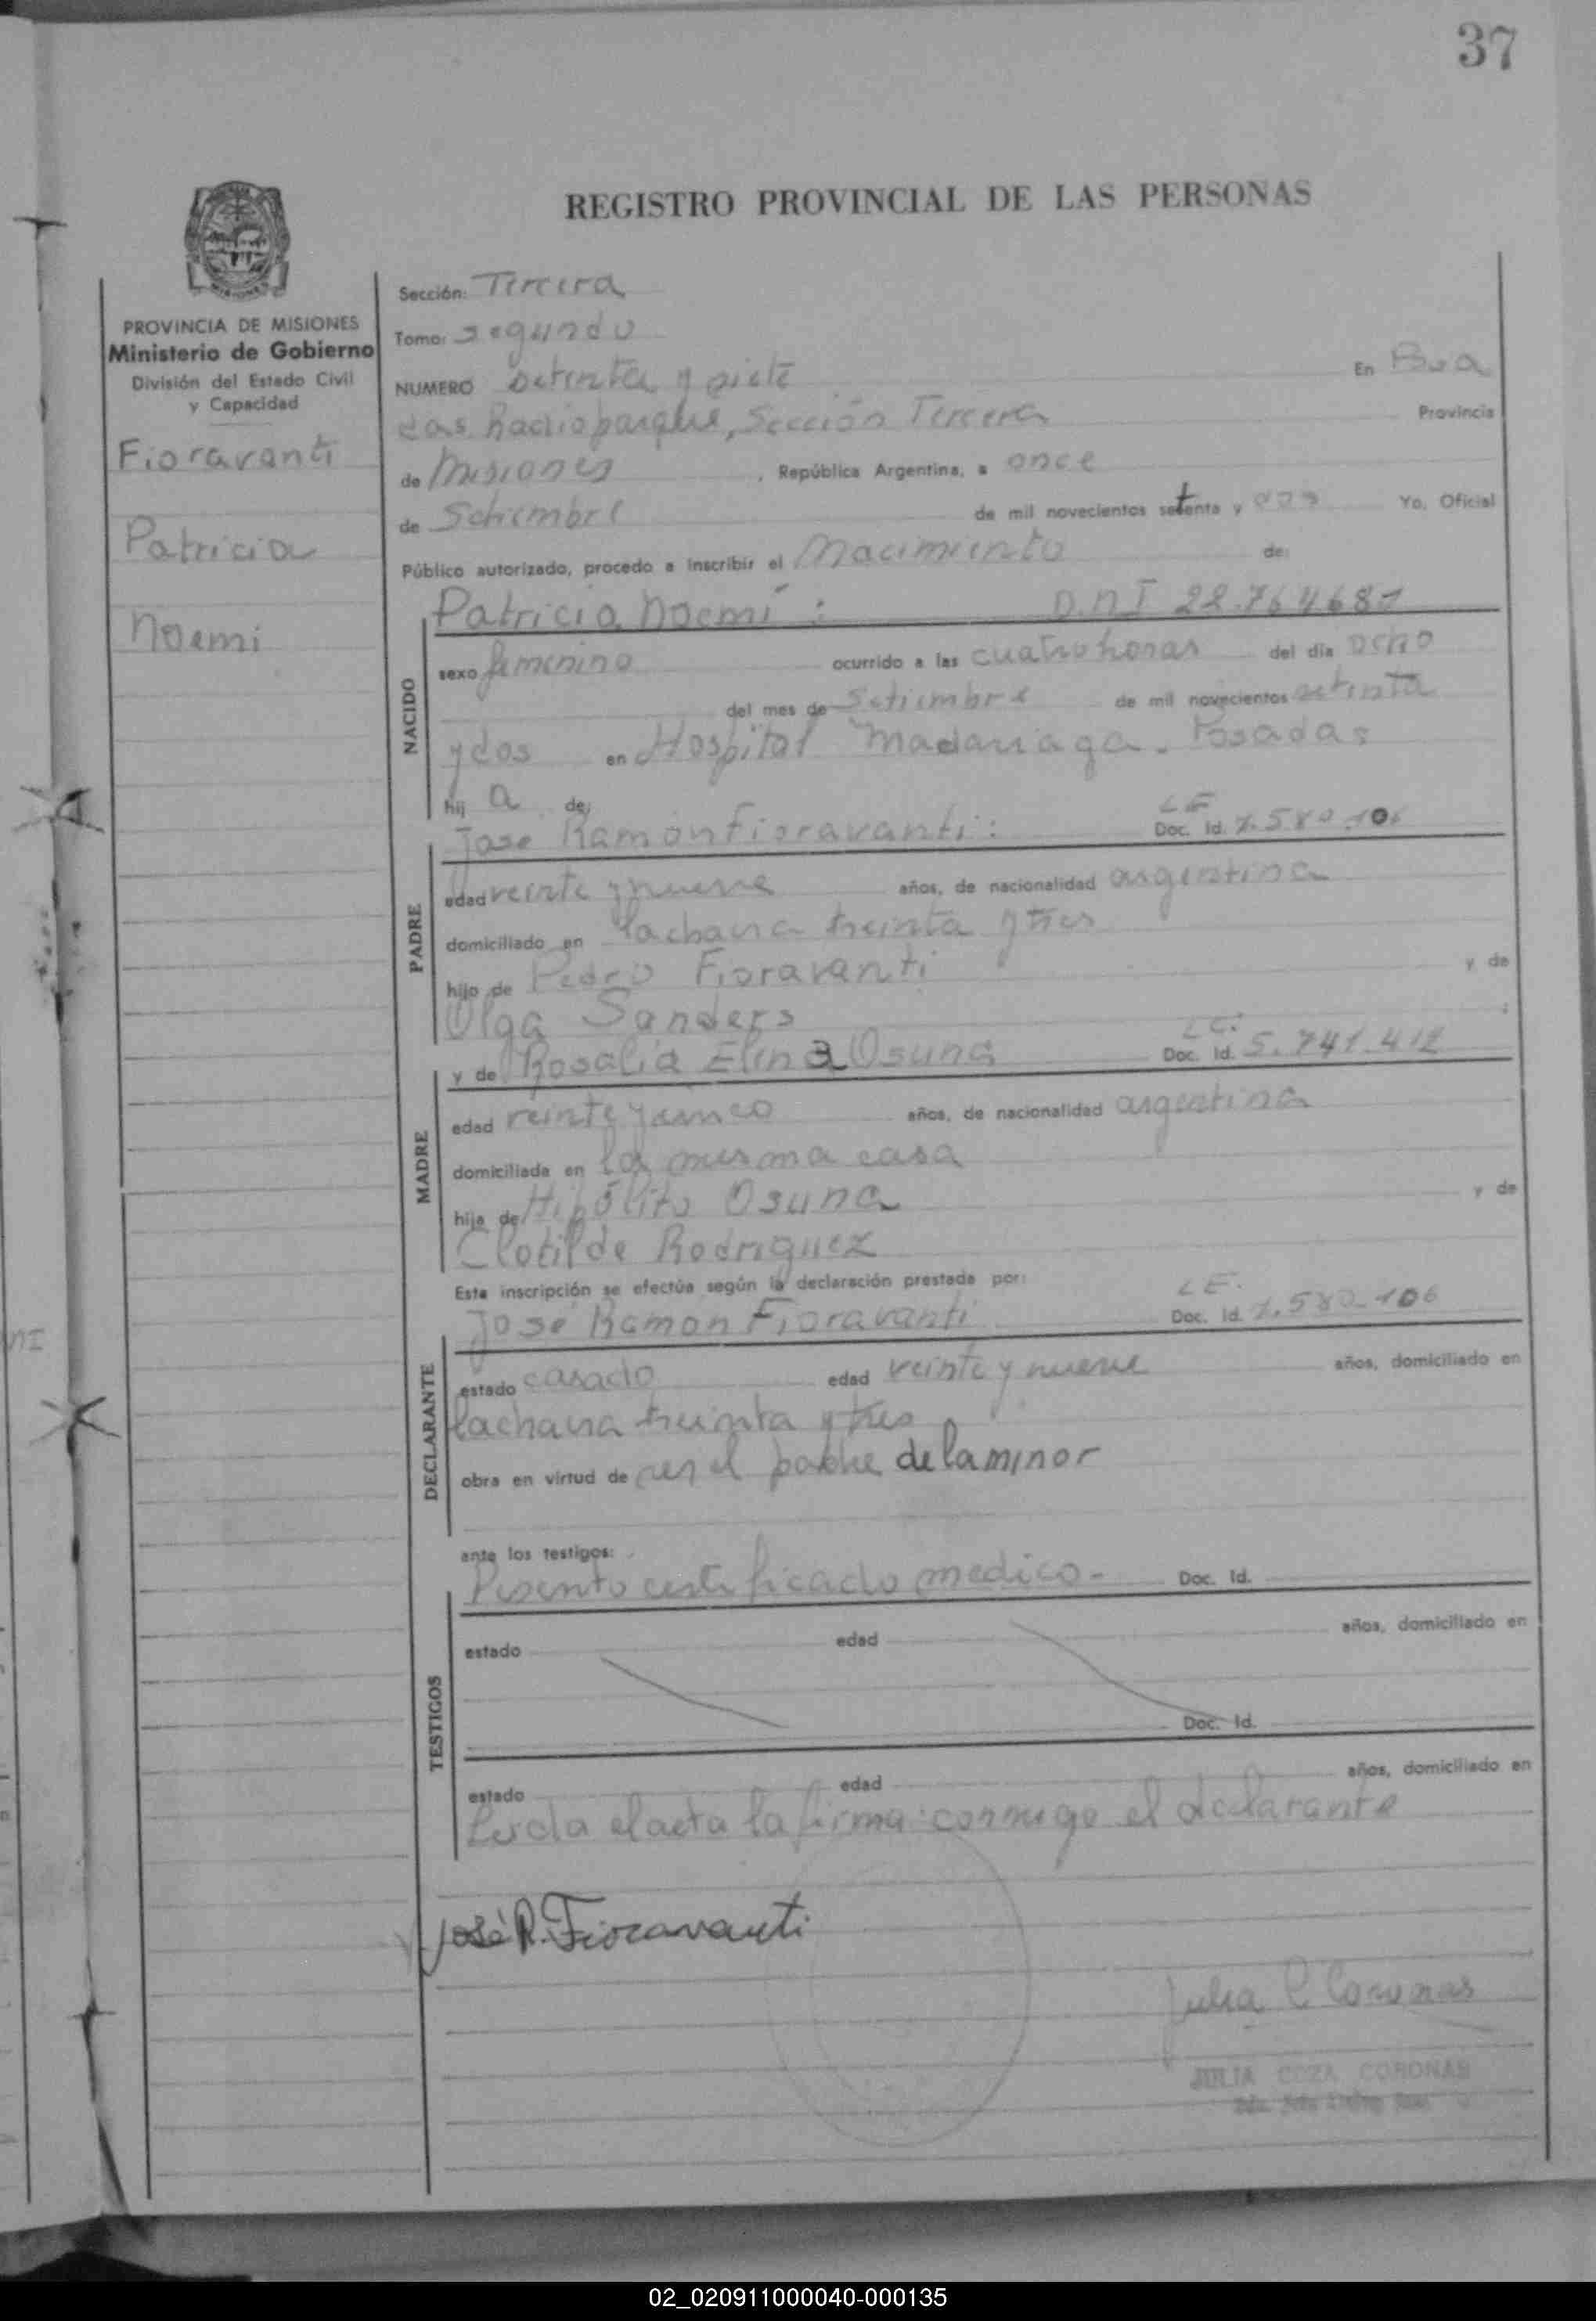 37
REGISTRO PROVINCIAL DE LAS PERSONAS
PROVINCIA DE MISIONES
Ministerio de Gobierno
División del Estado Civil
y Capacidad
Fioravanti
Patricia
Noemi
Sección: Tercera
Tomo: segundo
NUMERO setenta y siete En Posa
das Radioparque, Sección Tercera Provincia
de Misiones, República Argentina, a once
de Setiembre de mil novecientos setenta y dos Yo, Oficial
Público autorizado, procedo a inscribir el Nacimiento de:
Patricia Noemí: D.N.I 22.764681
NACIDO
sexo femenino ocurrido a las cuatro horas del día ocho
del mes de Setiembre de mil novecientos setenta
y dos en Hospital Madariaga. Posadas
hij a de:
José Ramón Fioravanti: L E Doc. Id. 7.580.106
PADRE
edad veinte y nueve años, de nacionalidad argentina
domiciliado en la chacra treinta y tres
hijo de Pedro Fioravanti y de
Olga Sanders ;
y de Rosalía Elina Osuna L C. Doc. Id. 5.741.412
MADRE
edad veinte y cinco años, de nacionalidad argentina
domiciliada en la misma casa
hija de Hipólito Osuna y de
Clotilde Rodriguez
Esta inscripción se efectúa según la declaración prestada por:
José Ramón Fioravanti L E. Doc. Id. 7.580.106
DECLARANTE
estado casado edad veinte y nueve años, domiciliado en
la chacra treinta y tres
obra en virtud de ser el padre de la minor
ante los testigos:
Presento certificado medico.- Doc. Id.
TESTIGOS
estado edad años, domiciliado en
Doc. Id.
estado edad años, domiciliado en
Leida el acta la firma conmigo el declarante
José R. Fioravanti
Julia C Coronas
JULIA COZA CORONAS
02_020911000040-000135